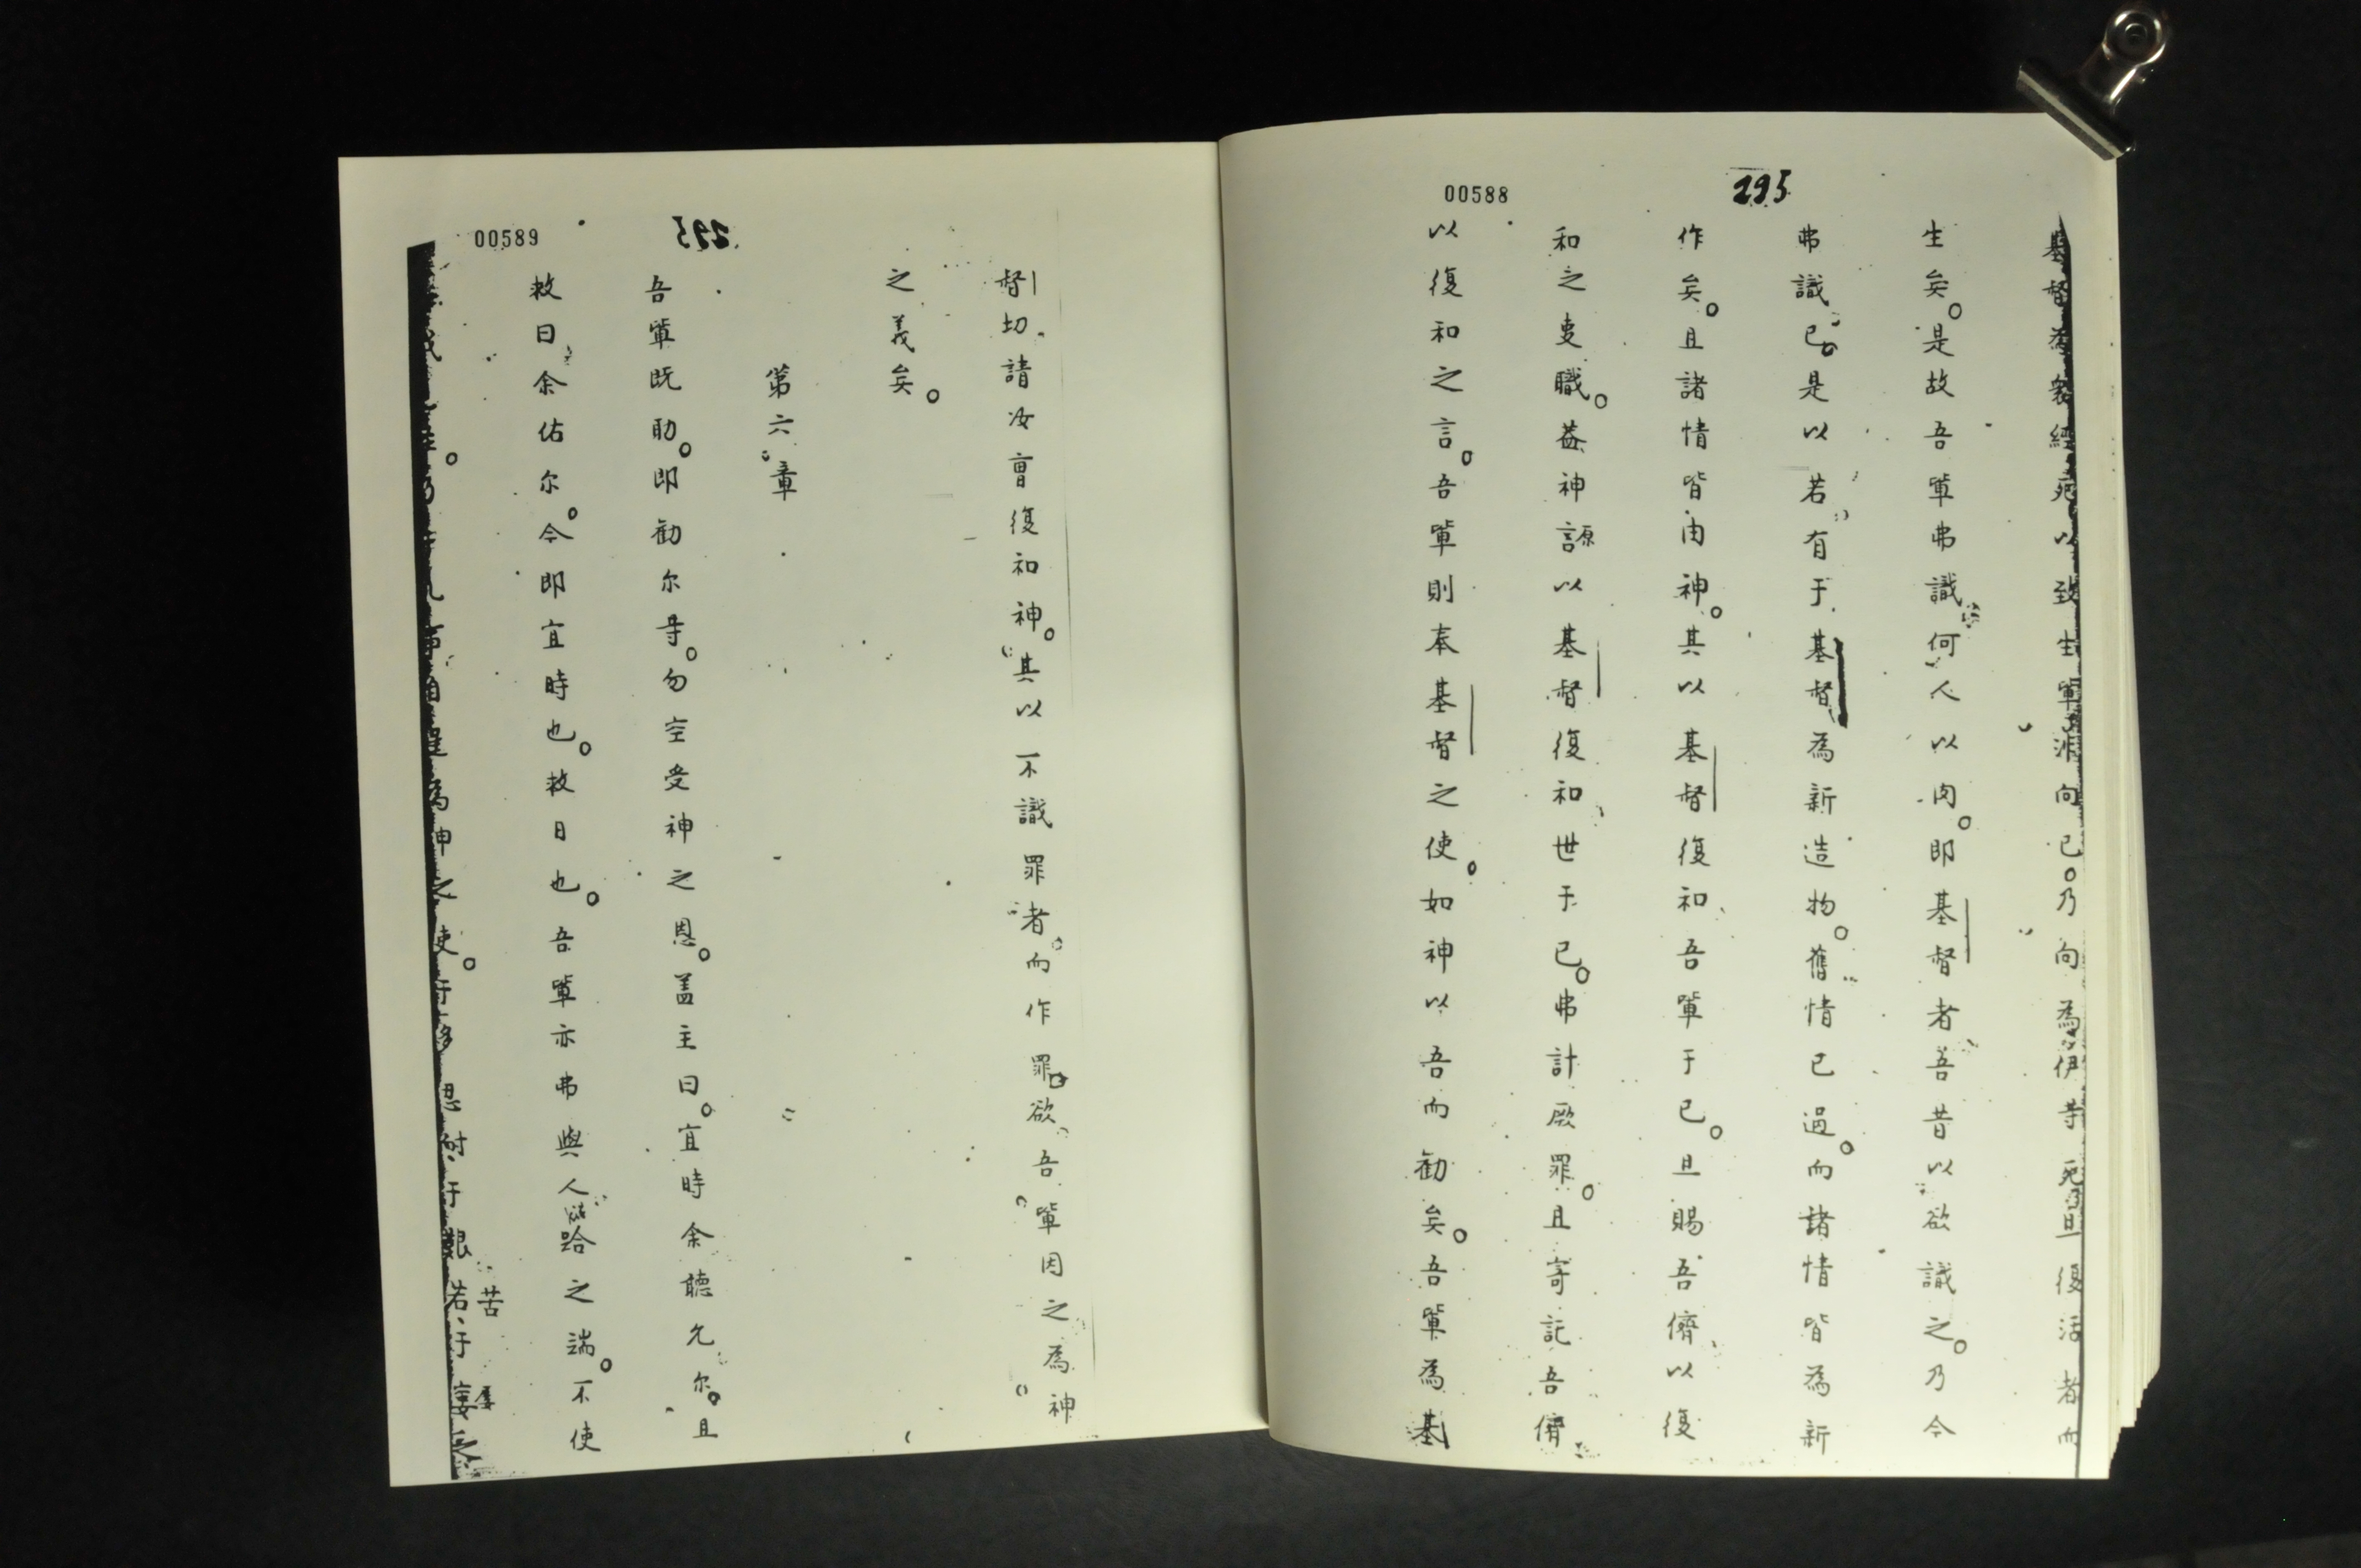 00588
295
基督為衆經死以致生軰非向已。乃向為伊等死且復活者而
生矣。是故吾軰弗識何人以肉。即基督者吾昔以欲識之。乃今
弗識已。是以若有于基督為新造物。舊情已過。而諸情皆為新
作矣。且諸情皆由神。其以基督復和吾軰于已。且賜吾儕以復
和之吏職。葢神謜以基督復和世于已。弗計厥罪。且寄記吾儕
以復和之言。吾軰則奉基督之使。如神以吾而勸矣。吾軰為基
00589
295
督切請汝曺復和神。其以不識罪者。而作罪。欲吾軰因之為神
之義矣。
第六章
吾軰既助。即勸尔等。勿空受神之恩。盖主曰。宜時余聽允尔。且
救日余佑尔。今即宜時也。救日也。吾軰亦弗與人跲之端。不使
為神之使。于多忍耐于艱苦于